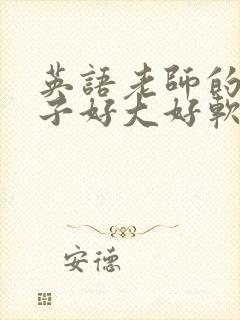 英語老師的
子好大好軟
安德